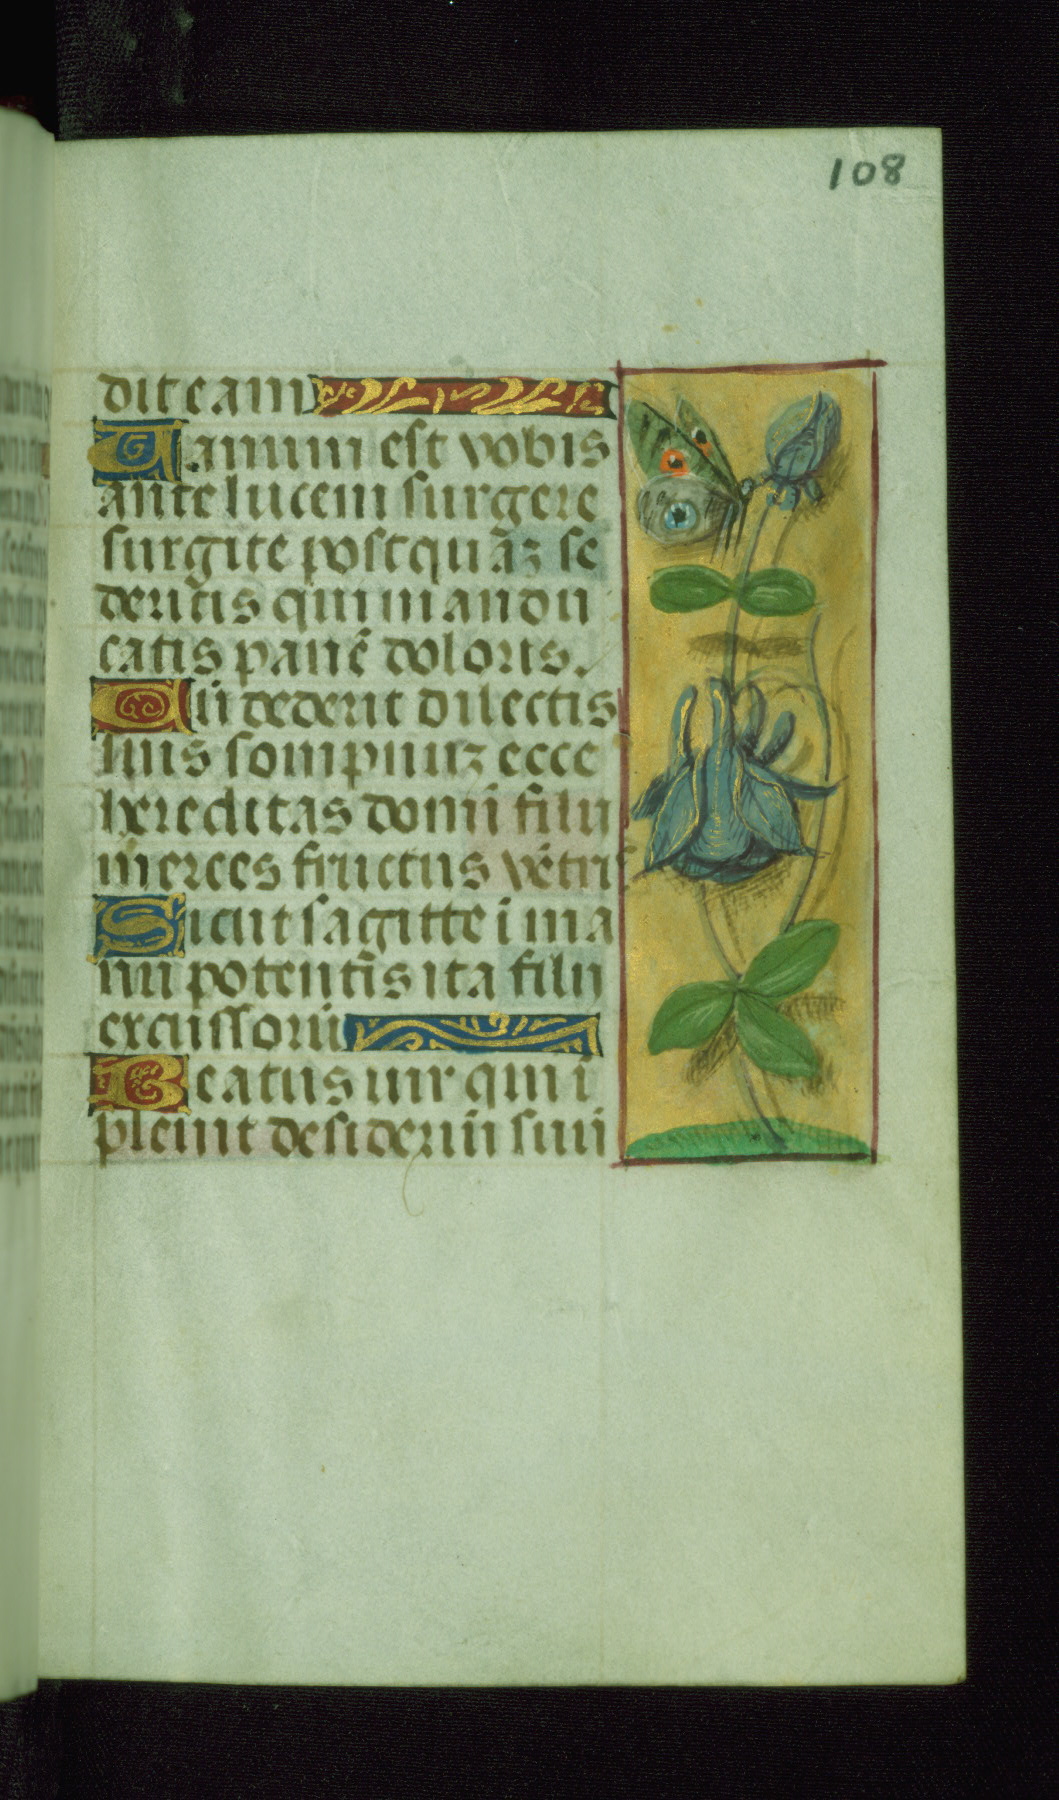 108
dit eam
Uanum est vobis
ante lucem surgere
surgite postquaz se
deritis qui mandu
catis panē doloris.
Cū dederit dilectis
suis sompnuz ecce
hereditas domī filii
merces fructus vētris
Sicut sagitte ī ma
nu potentis ita filii
excussorū
Beatus uir qui ī
pleuit desideriū suū